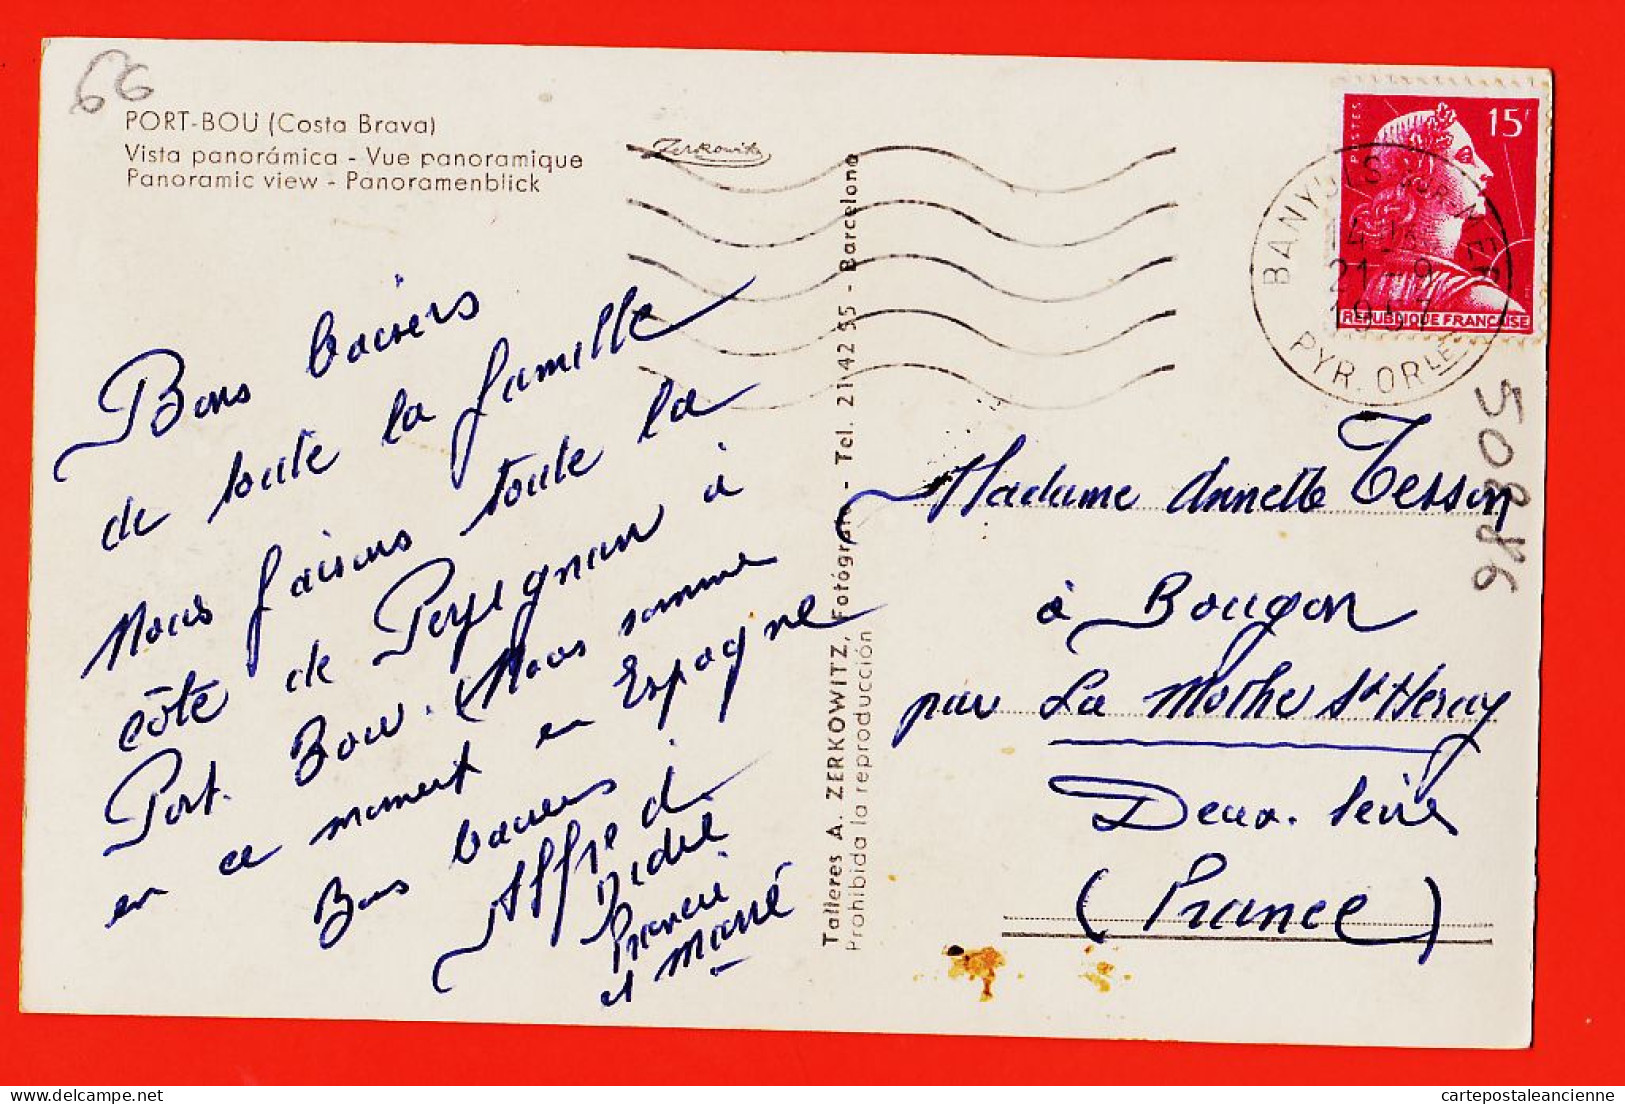 66
PORT-BOU (Costa Brava)
Vista panorámica - Vue panoramique
Panoramic view - Panoramenblick
Zerkowitz
Bons baisers
de toute la famille
Nous faisons toute la
côte de Perpignan à
Port-Bou. Nous somme
en ce moment en Espagne
Bons baisers
Alfred
Francis
et Marie
Talleres A. ZERKOWITZ, Fotógrafo - Tel. 21 42 55 - Barcelona
Prohibida la reproducción
POSTES
15F
REPUBLIQUE FRANÇAISE
BANYULS SUR MER
14 H
21 - 9
1957
PYR. ORLES
50886
Madame Annette Tesson
à Bougon
par La Mothe St Heray
Deux-Sèvres
(France)
cartepostaleancienne